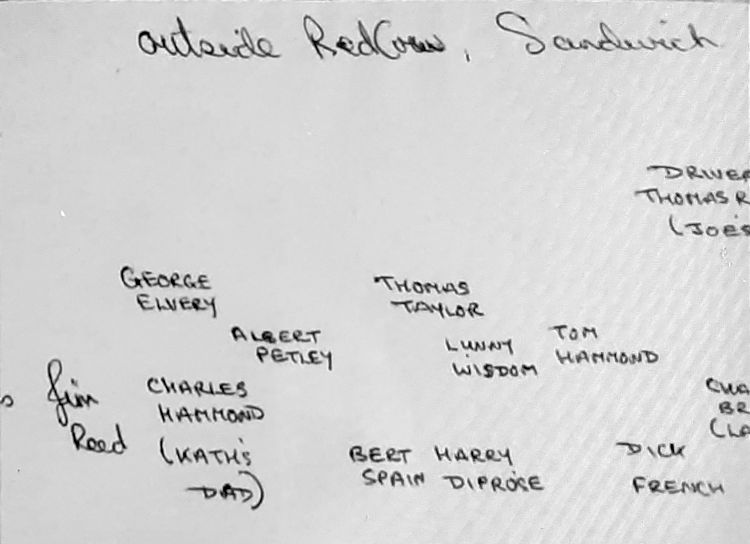 outside Red Cow, Sandwich
DRIVER
THOMAS R
(JOE'S
GEORGE
ELVERY
THOMAS
TAYLOR
ALBERT
PETLEY
LUNNY
WISDOM
TOM
HAMMOND
Jim
Reed
CHARLES
HAMMOND
(KATH'S
DAD)
BERT
SPAIN
HARRY
DIPROSE
DICK
FRENCH
CHA
BR
(LA